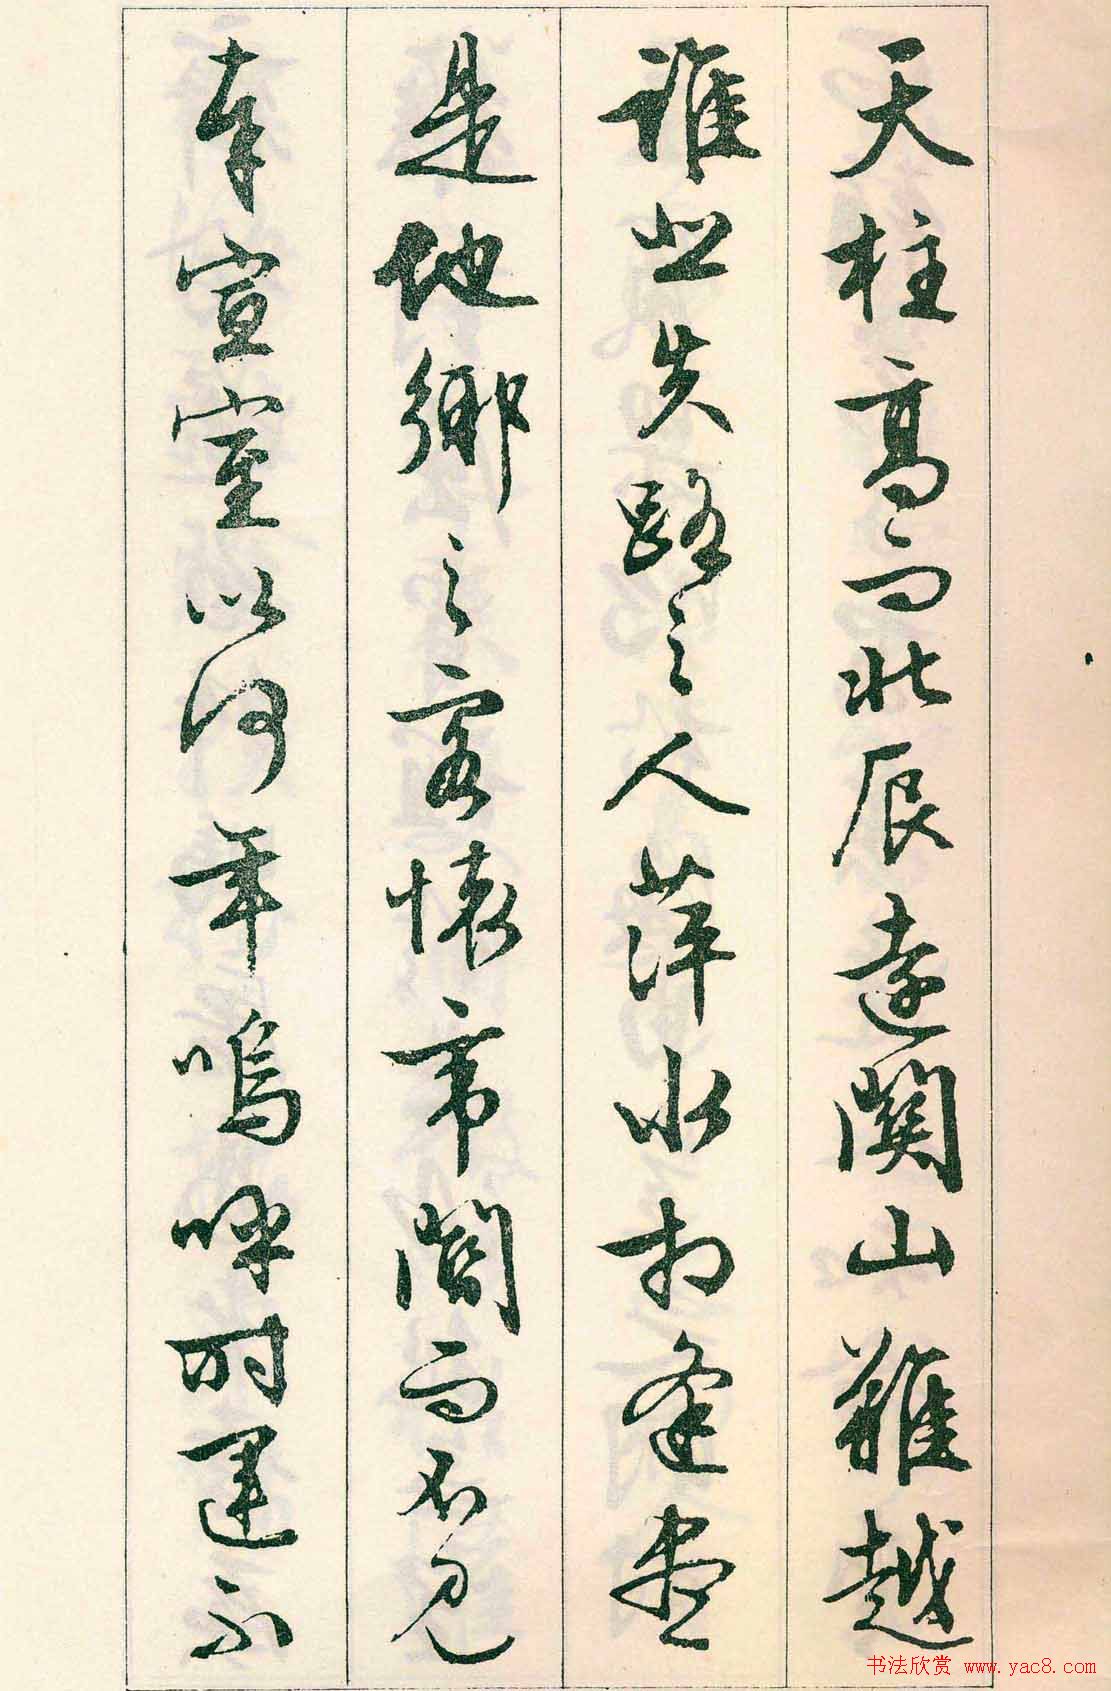 天柱高而北辰遠關山難越
誰悲失路之人萍水相逢盡
是他鄉之客懷帝閽而不見
奉宣室以何年嗚呼時運不
书法欣赏 www.yac8.com